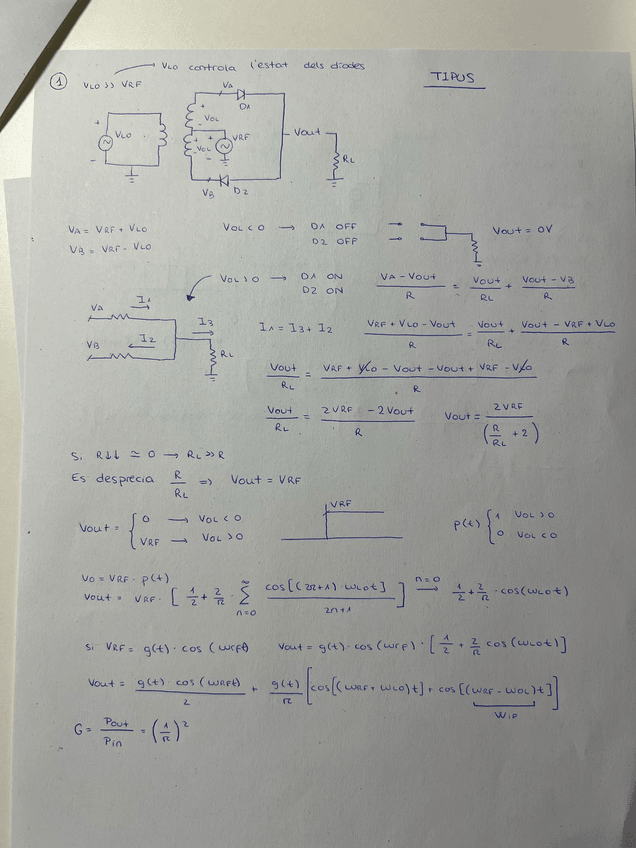 VLO controla l'estat dels díodes
TIPUS
1 VLO >> VRF
VA
D1
+
VOL
-
+
VLO
-
+
VOL
-
+
VRF
-
Vout
RL
VB D2
VA = VRF + VLO
VB = VRF - VLO
VOL < 0 → D1 OFF
D2 OFF
Vout = 0V
VOL > 0 → D1 ON
D2 ON
(VA - Vout)/R = Vout/RL + (Vout - VB)/R
VA I1
VB I2
I3
RL
I1 = I3 + I2
(VRF + VLO - Vout)/R = Vout/RL + (Vout - VRF + VLO)/R
Vout/RL = (VRF + VLO - Vout - Vout + VRF - VLO)/R
Vout/RL = (2VRF - 2Vout)/R
Vout = 2VRF/(R/RL + 2)
Si R↓↓ ≃ 0 → RL >> R
Es desprecia R/RL => Vout = VRF
Vout = { 0 → VOL < 0
VRF → VOL > 0
VRF
p(t) { 1 VOL > 0
0 VOL < 0
Vo = VRF · p(t)
Vout = VRF · [ 1/2 + 2/π · ∑ n=0 ∞ cos[(2n+1) · WLOt]/(2n+1) ] n=0 → 1/2 + 2/π · cos(WLOt)
Si VRF = g(t) · cos (WRFt) Vout = g(t) · cos (WRF) · [ 1/2 + 2/π cos(WLOt) ]
Vout = g(t) · cos (WRFt)/2 + g(t)/π [ cos[(WRF + WLO)t] + cos[(WRF - WOL)t] ]
WIF
G = Pout/Pin = (1/π)²